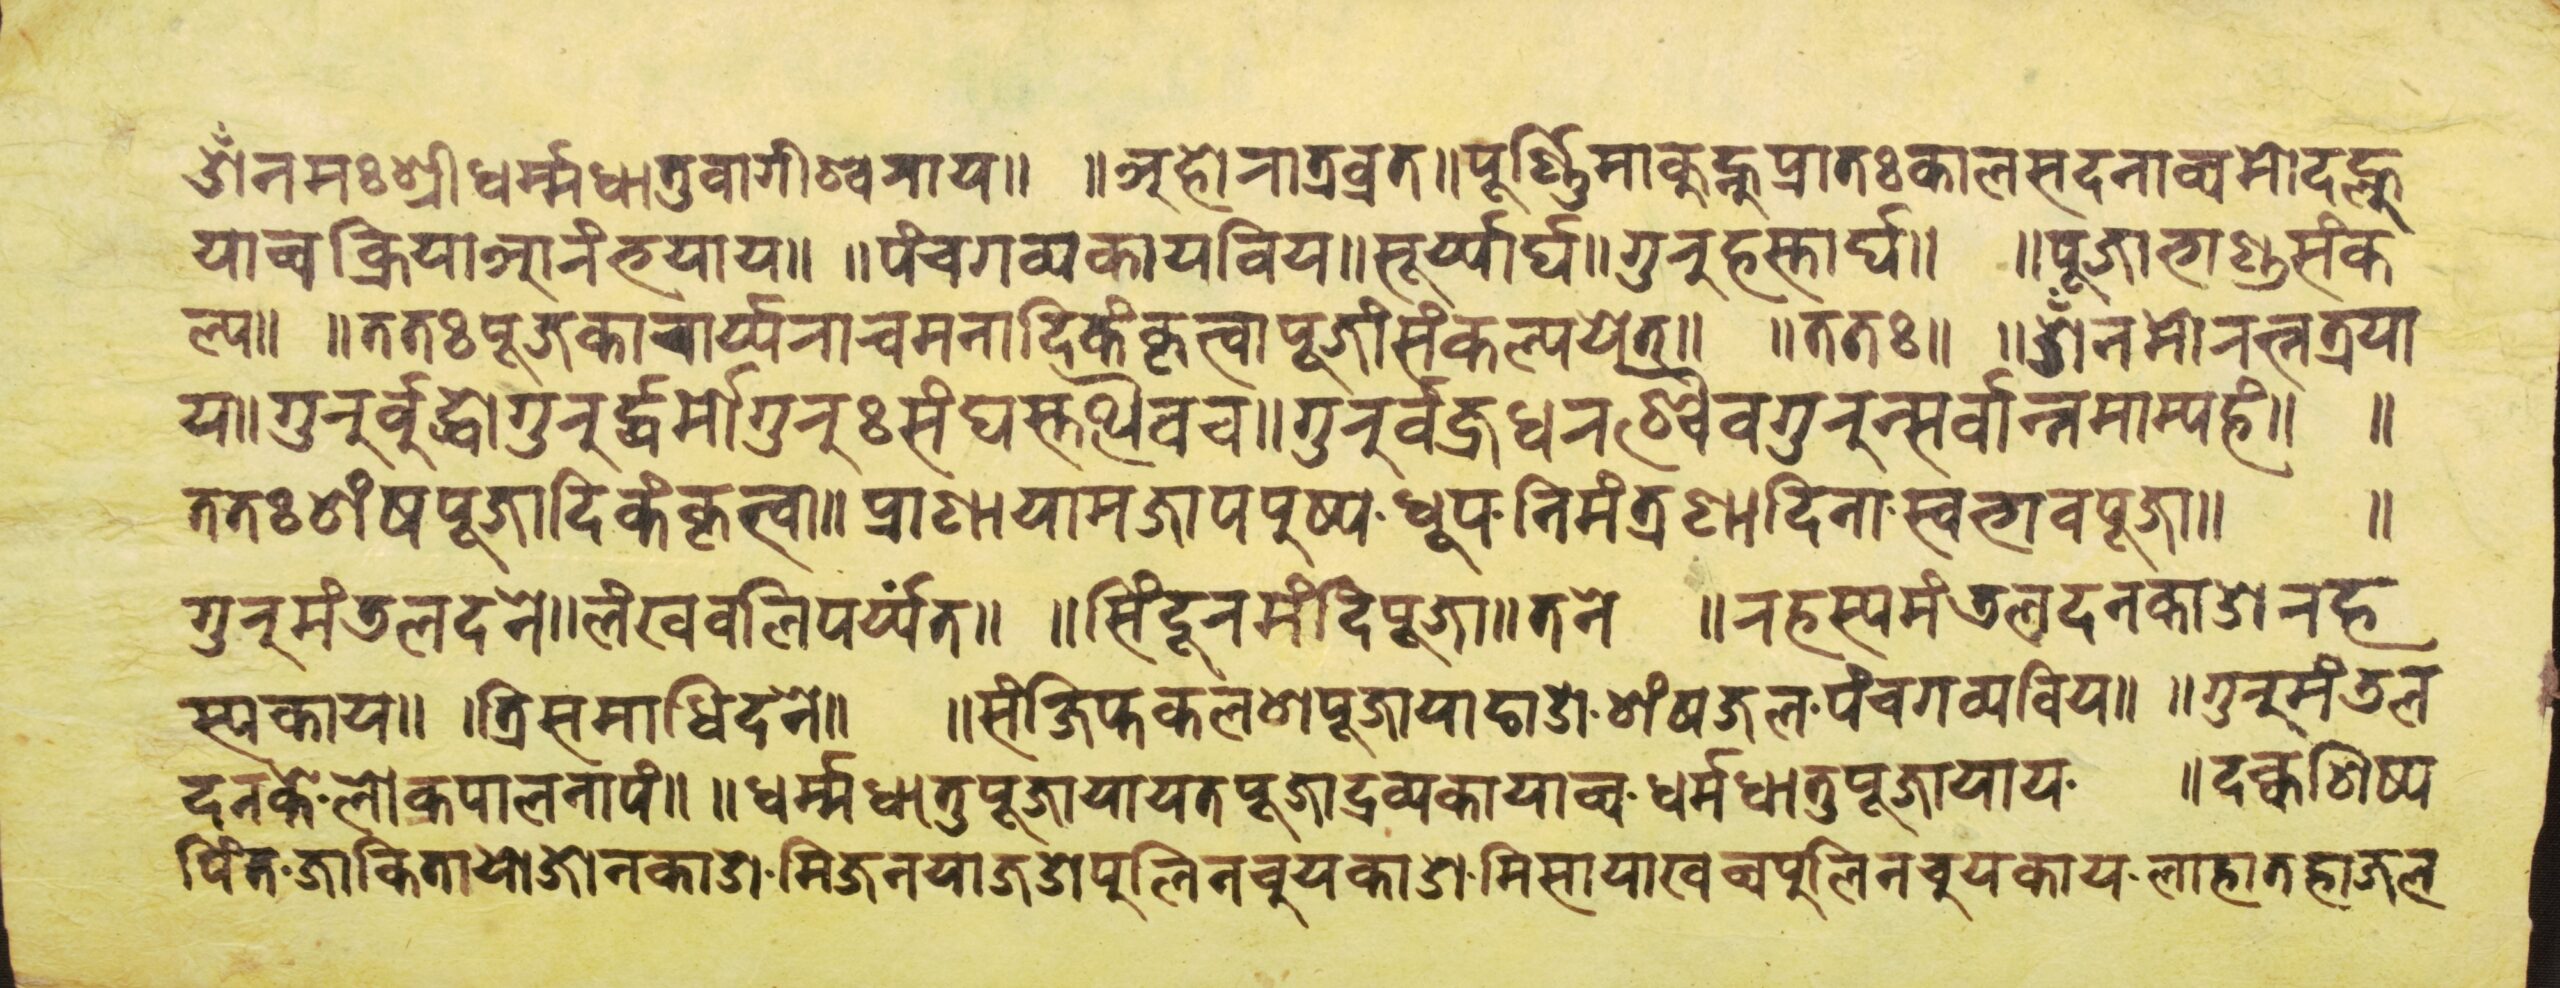 ॐ नमः श्रीधर्म्मधातुवागीश्वराय॥ ॥अहोरात्रव्रत॥पूर्ण्णिमाकुह्नुप्रातःकालसदनाव्य
याव्वक्रियाआनंरुयाय॥ ॥पंचगव्यकायविय॥सूर्य्यार्घ॥गुरुहस्तार्घ॥ ॥पूजाभाण्डसंक
ल्प॥ ॥ततःपूजकाचार्य्यनाचमनादिकंकृत्वापूजांसंकल्पयेत्॥ ॥ततः॥ ॥ॐनमोरत्नत्रया
य॥गुरुर्बुद्धोगुरुर्द्धर्मोगुरुःसंघस्तथैवच॥गुरुर्वज्रधरश्चैवगुरुन्सर्वान्नमाम्यहं॥ ॥
ततःशंषपूजादिकंकृत्वा॥प्राणायामजापपुष्प·धूप·निमंत्रणादिना·स्वभावपूजा॥ ॥
गुरुमंडलदने॥लंखवलिपर्य्यंत॥ ॥सिंदूरमंदिपूजा॥तने ॥रहस्यमंडलदनकाओरह
स्यकाय॥ ।त्रिसमाधिदने॥ ॥संक्षिप्तकलशपूजायाङाओ·शंषजल·पंचगव्यविय॥ ॥गुरुमंडल
दनके·लोकपालनापं॥ ॥धर्म्मधातुपूजायायतपूजाद्रव्यकायाव्व·धर्मधातुपूजायाय· ॥दक्वशिष्य
पिंत·जाकितायोजोनकाओ·मिजनयाजओपुलिनचुयकाओ·मिसायाखव्वपुलिनचुयकाय·लाहातह्राजल